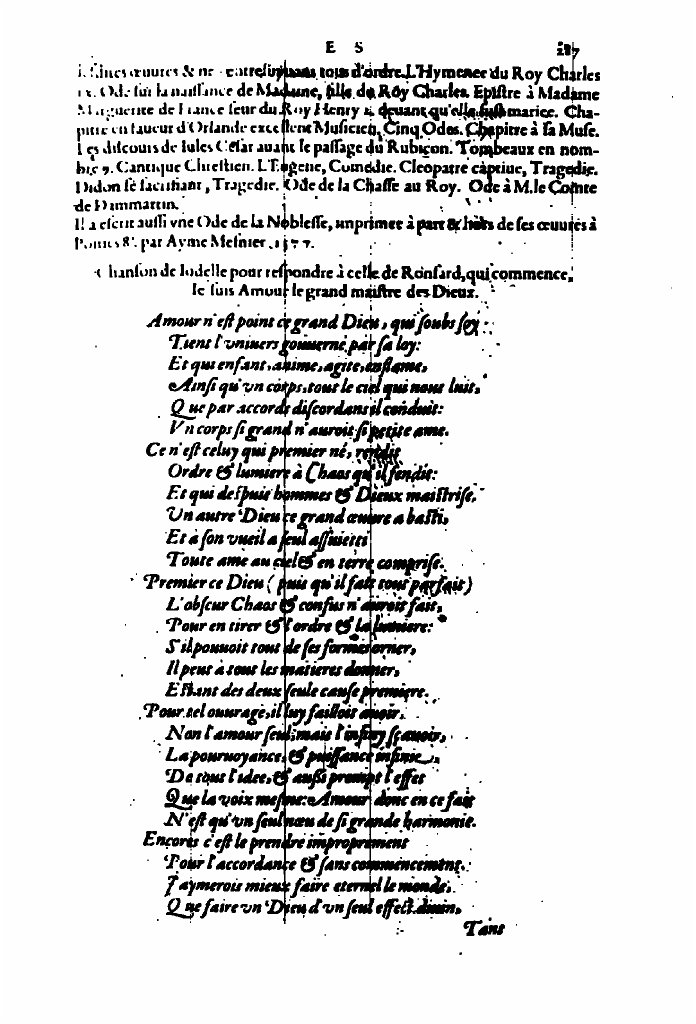 E S 287
œuures & ne tous d'ordre. L'Hymenee du Roy Charles
ix. Ode sur la naissance de Madame, fille du Roy Charles. Epistre à Madame
Marguerite de France seur du Roy Henry 2. deuant qu'elle fust mariee. Cha-
pitre en faueur d'Orlande excellent Musicien, Cinq Odes. Chapitre à sa Muse.
Les discours de Iules Cesar auant le passage du Rubicon. Tombeaux en nom-
bre 7. Cantique Chrestien. L'Eugene, Comedie. Cleopatre captiue, Tragedie.
Didon se sacrifiant, Tragedie. Ode de la Chasse au Roy. Ode à M. le Comte
de Dammartin.
Il a escrit aussi vne Ode de la Noblesse, imprimee à part & hors de ses œuures à
8. par Ayme Mesnier. 1577.
Chanson de Iodelle pour respondre à celle de Ronsard, qui commence,
Ie suis Amour le grand maistre des Dieux.
Amour n'est point ce grand Dieu, qui soubs soy
Tient l'vniuers gouuerné par sa loy:
Et qui enfant, anime, agite, enflame,
Ainsi qu'vn corps, tout le ciel qui nous luit,
Que par accords discordans il conduit:
Vn corps si grand n'auroit si petite ame.
Ce n'est celuy qui premier né, rendit
Ordre & lumiere à Chaos qu'il fendit:
Et qui despuis hommes & Dieux maistrise,
Un autre Dieu ce grand œuure a basti,
Et à son vueil a seul assuietti
Toute ame au ciel & en terre comprise.
Premier ce Dieu (puis qu'il fait tout parfait)
L'obscur Chaos & confus n'auroit fait,
Pour en tirer & l'ordre & la lumiere:
S'il pouuoit tout de ses formes orner,
Il peut à tout les matieres donner,
Estant des deux seule cause premiere.
Pour tel ouurage, il luy failloit auoir,
Non l'amour seul: mais l'infiny sçauoir,
La pouruoyance, & puissance infinie,
De tous l'idee, & aussi prompt l'effet
Que la voix mesme: Amour donc en ce fait
N'est qu'vn seul nœu de si grande harmonie.
Encores c'est le prendre improprement
Pour l'accordance & sans commencement,
J'aymerois mieux faire eternel le monde,
Que faire vn Dieu d'vn seul effect diuin,
Tans